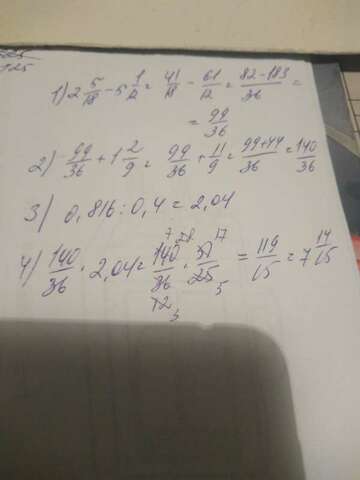 125
1) 2 5/18 - 5 1/12 = 41/18 - 61/12 = 82-183/36 =
= 99/36
2) 99/36 + 1 2/9 = 99/36 + 11/9 = 99+44/36 = 140/36
3) 0,816 : 0,4 = 2,04
4) 140/36 · 2,04 = 140/36 · 51/25 = 119/15 = 7 14/15
7 28 17
12 3 5